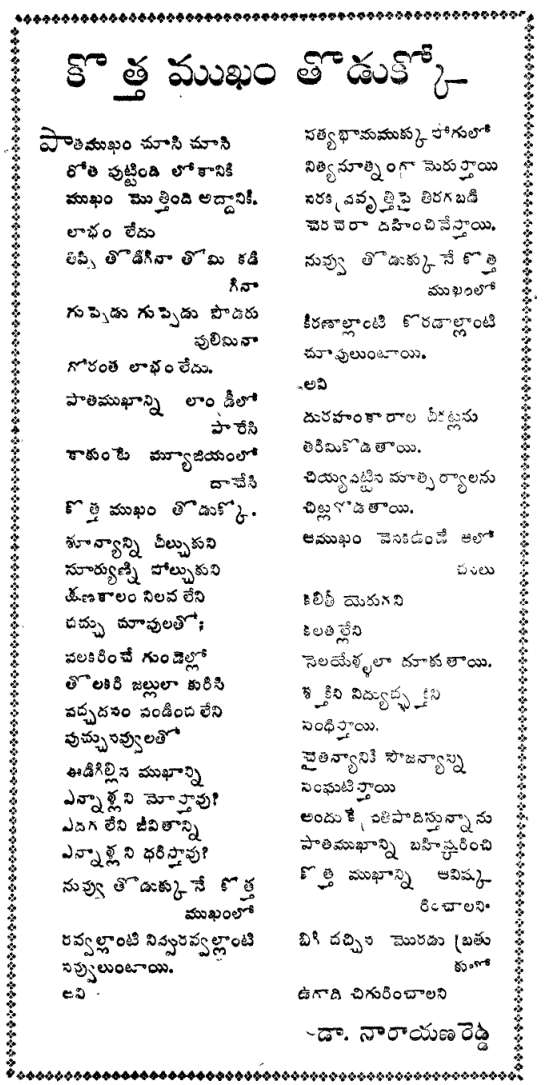 కొత్త ముఖం తొడుక్కో
పాతిముఖం చూసి చూసి
రోత పుట్టింది లోకానికి
ముఖం మొత్తింది అద్దానికి.
లాభం లేదు
ఉప్పి తొడిగినా తోమి కడి
గినా
గుప్పెడు గుప్పెడు పౌడరు
పులిమినా
గోరంత లాభం లేదు.
పాతిముఖాన్ని లాండ్రీలో
పారేసి
కాకుంటె మ్యూజియంలో
దాచేసి
కొత్త ముఖం తొడుక్కో.
శూన్యాన్ని చీల్చుకుని
సూర్యుణ్ని పోల్చుకుని
క్షణకాలం నిలవ లేని
చచ్చు చూపులతో;
పలకరించే గుండెల్లో
తొలకరి జల్లులా కురిసి
పచ్చదనం పండించ లేని
పుచ్చునవ్వులతో
ఊడిగిల్లిన ముఖాన్ని
ఎన్నాళ్లని మోస్తావు?
ఎదగ లేని జీవితాన్ని
ఎన్నాళ్లని ధరిస్తావు?
నువ్వు తొడుక్కునే కొత్త
ముఖంలో
రవ్వల్లాంటి నిప్పురవ్వల్లాంటి
నవ్వులుంటాయి.
అవి
సత్యభామముక్కు పోగులో
నిత్యనూత్నంగా మెరుస్తాయి
నరక ప్రవృత్తిపై తిరగబడి
చెరచెరా దహించివేస్తాయి.
నువ్వు తొడుక్కునే కొత్త
ముఖంలో
కిరణాల్లాంటి కొరడాల్లాంటి
చూపులుంటాయి.
అవి
దురహంకారాల చీకట్లను
తిరిమికొడతాయి.
చియ్యపట్టిన మాత్సర్యాలను
చిల్లుగొడతాయి.
ఆముఖం వెనకవుండే ఆలో
చనలు
కలితీ యెరుగని
కలతిల్లేని
సెలయేళ్ళలా దూకుతాయి.
శక్తిని విద్యుచ్ఛక్తిని
సంధిస్తాయి.
చైతన్యానికి సౌజన్యాన్ని
సంఘటిస్తాయి
అందుకే ప్రతిపాదిస్తున్నాను
పాతిముఖాన్ని బహిష్కరించి
కొత్త ముఖాన్ని ఆవిష్క
రించాలని
బిగదచ్చిన మొరడు బ్రతు
కులో
ఉగాది చిగురించాలని
-డా. నారాయణరెడ్డి